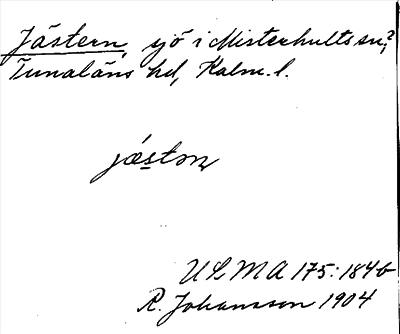 Jästern, sjö i Misterhults sn,?
Tunaläns hd, Kalm. l.
jästən
ULMA 175:184 b
R. Johansson 1904